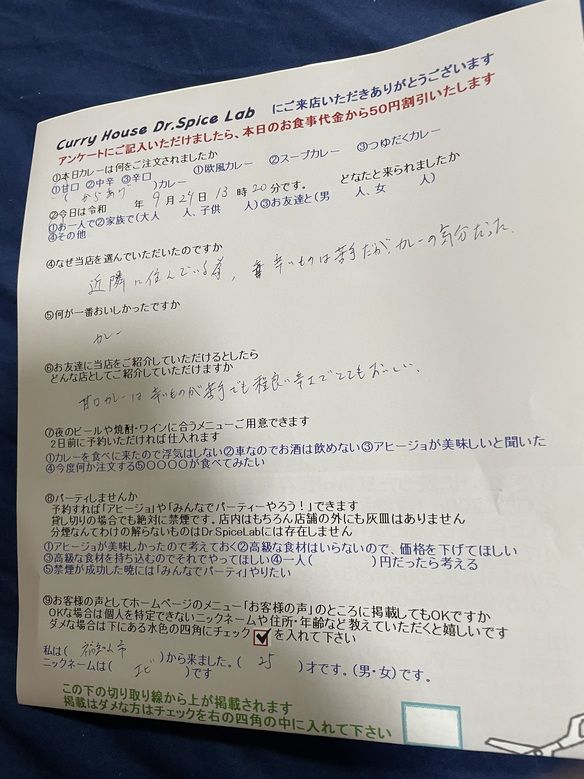 Curry House Dr.Spice Lab にご来店いただきありがとうございます
アンケートにご記入いただけましたら、本日のお食事代金から50円割引いたします
①本日カレーは何をご注文されましたか
①甘口 ②中辛 ③辛口 ①欧風カレー ②スープカレー ③つゆだくカレー
( からあげ )カレー
②今日は令和 年 9 月 24 日 13 時 20 分です。 どなたと来られましたか
①お一人で②家族で(大人 人、子供 人)③お友達と(男 人、女 人)
④その他
④なぜ当店を選んでいただいたのですか
近隣に住んでいる為、辛いものは苦手だが、カレーの気分だった。
⑤何が一番おいしかったですか
カレー
⑥お友達に当店をご紹介していただけるとしたら
どんな店としてご紹介していただけますか
甘口カレーは辛いものが苦手でも程良い辛さでとてもおいしい。
⑦夜のビールや焼酎・ワインに合うメニューご用意できます
2日前に予約いただければ仕入れます
①カレーを食べに来たので浮気はしない②車なのでお酒は飲めない③アヒージョが美味しいと聞いた
④今度何か注文する⑤○○○○が食べてみたい
⑧パーティしませんか
予約すれば「アヒージョ」や「みんなでパーティーやろう！」できます
貸し切りの場合でも絶対に禁煙です。店内はもちろん店舗の外にも灰皿はありません
分煙なんてわけの解らないものはDr.SpiceLabには存在しません
①アヒージョが美味しかったので考えておく②高級な食材はいらないので、価格を下げてほしい
③高級な食材を持ち込むのでそれでやってほしい④一人( )円だったら考える
⑤禁煙が成功した暁には「みんなでパーティ」やりたい
⑨お客様の声としてホームページのメニュー「お客様の声」のところに掲載してもOKですか
OKな場合は個人を特定できないニックネームや住所・年齢など教えていただくと嬉しいです
ダメな場合は下にある水色の四角にチェック を入れて下さい
私は( 福知山市 )から来ました。( 25 )才です。(男・女)です。
ニックネームは( エビ )です
この下の切り取り線から上が掲載されます
掲載はダメな方はチェックを右の四角の中に入れて下さい